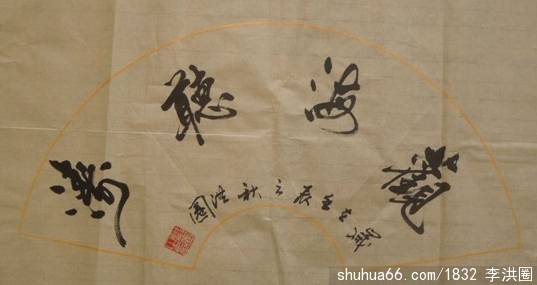 觀海聽濤
歲在壬辰之秋洪圈
shuhua66.com/1832 李洪圈